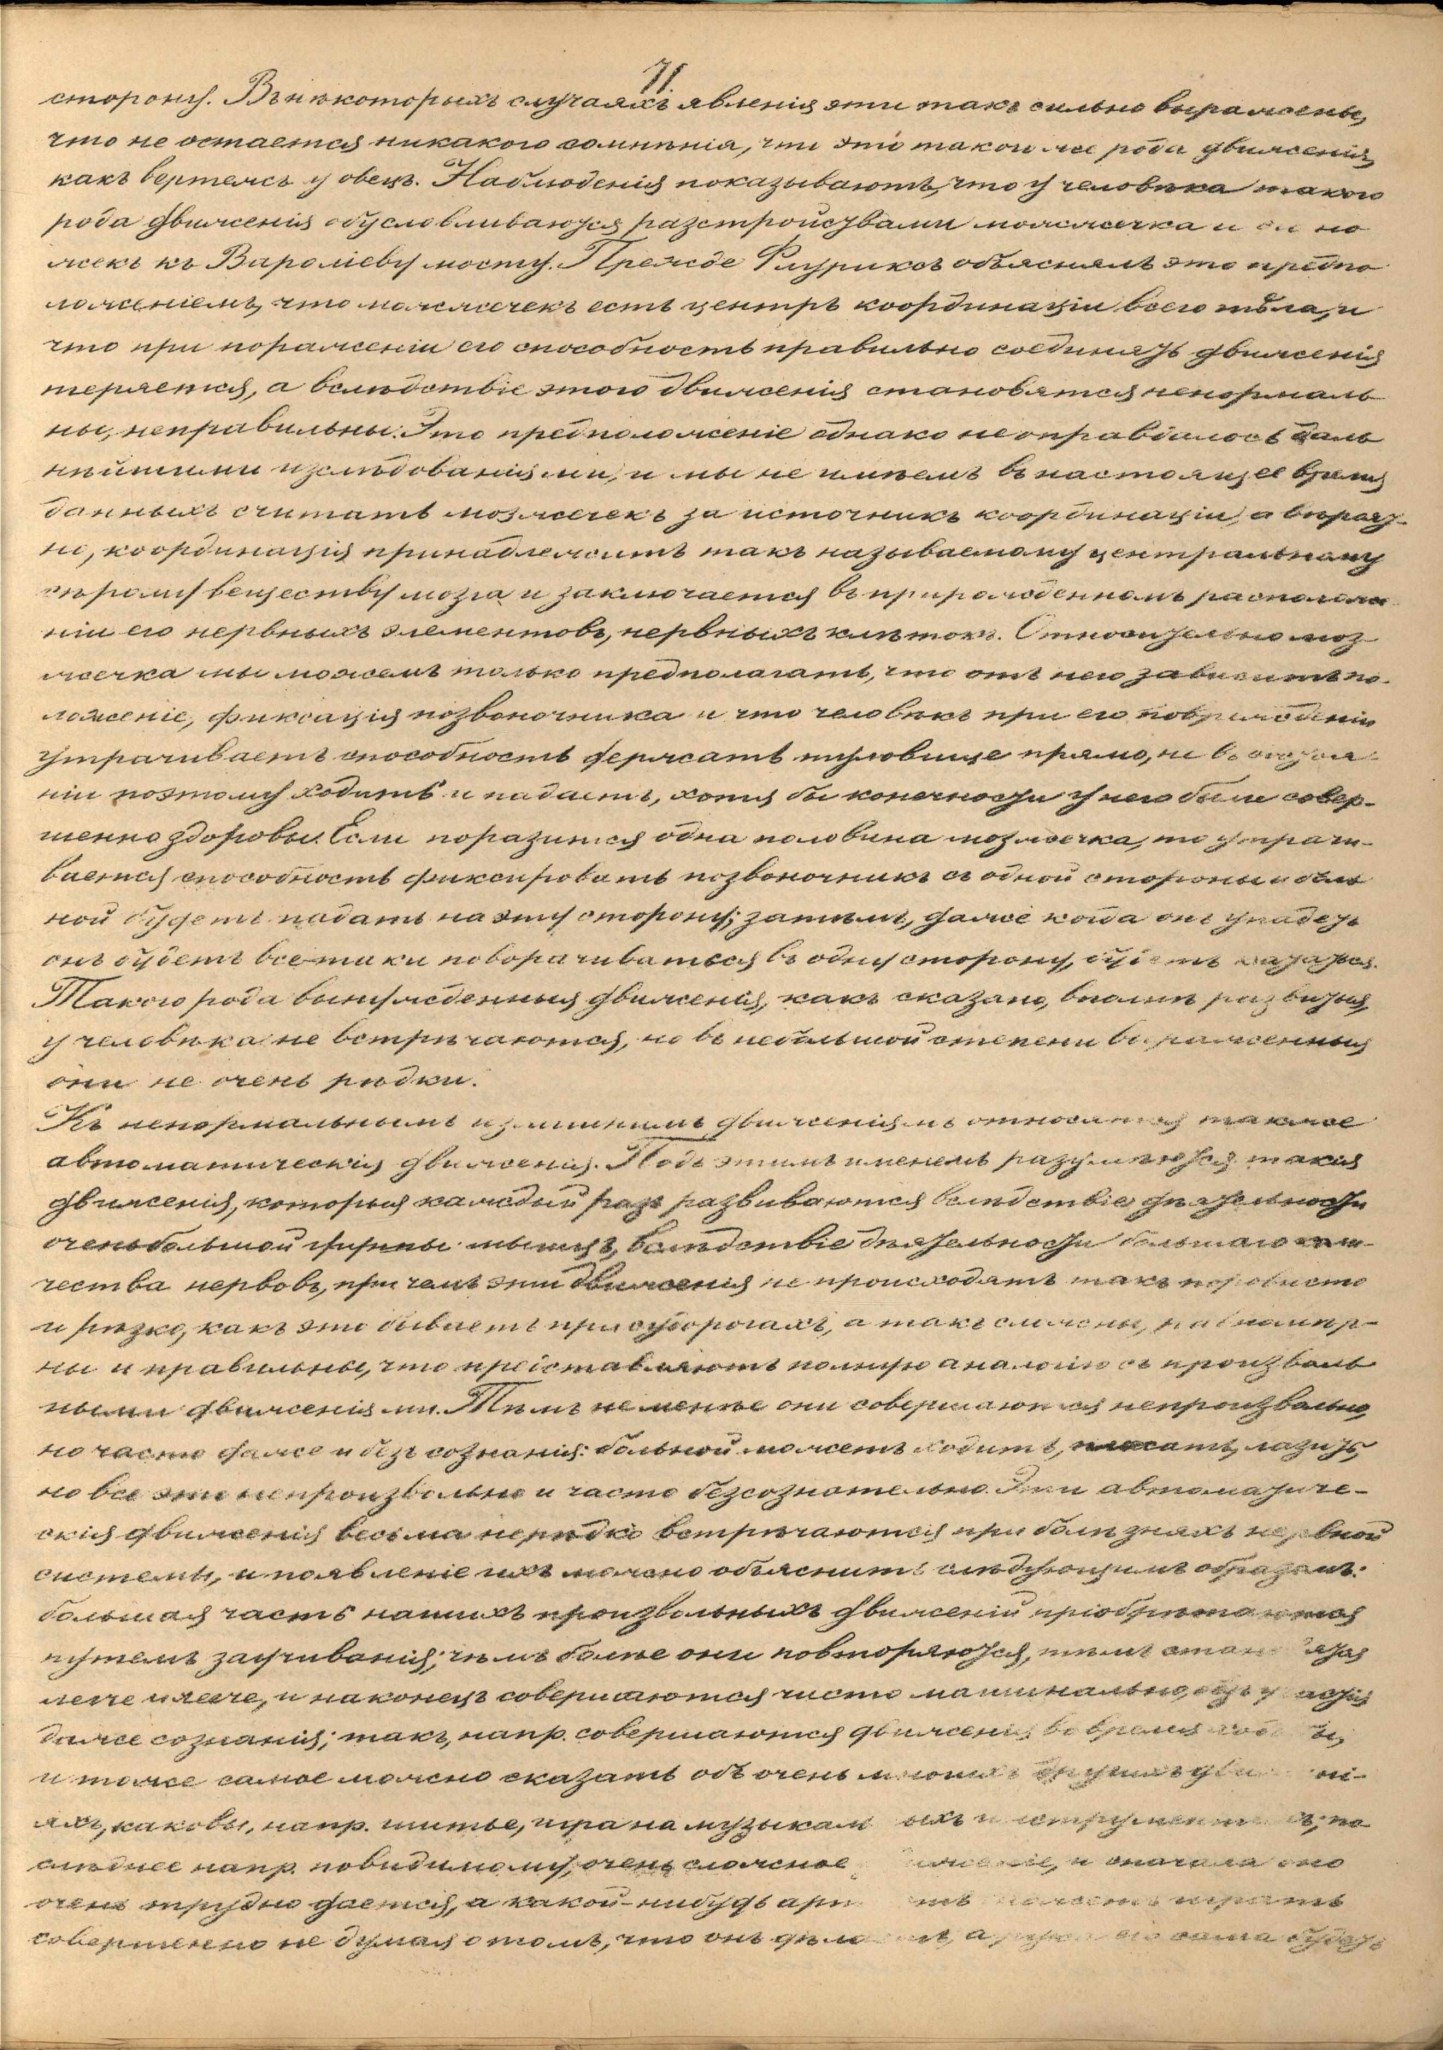 71.
сторону. Въ нѣкоторыхъ случаяхъ явленія эти такъ сильно выражены,
что не остается никакого сомнѣнія, что это такого же рода движенія,
какъ вертежъ у овецъ. Наблюденія показываютъ, что у человѣка такого
рода движенія обусловливаются разстройствами мозжечка и его но
жекъ къ Вароліеву мосту. Прежде объяснялъ это предпо
ложеніемъ, что мозжечекъ есть центръ координаціи всего тѣла, и
что при пораженіи его способность правильно соединять движенія
теряется, а вслѣдствіе этого движенія становятся ненормаль
ны, неправильны. Это предположеніе однако не оправдалось даль
нѣйшими изслѣдованіями, и мы не имѣемъ въ настоящее время
данныхъ считать мозжечекъ за источникъ координаціи, а вѣроят-
но, координація принадлежитъ такъ называемому центральному
сѣрому веществу мозга и заключается въ прирожденномъ расположе
ніи его нервныхъ элементовъ, нервныхъ клѣтокъ. Относительно моз
жечка мы можемъ только предполагать, что отъ него зависитъ по-
ложеніе, фиксація позвоночника и что человѣкъ при его поврежденіи
утрачиваетъ способность держать туловище прямо, не въ состоя-
ніи поэтому ходить и падаетъ, хотя бы конечности у него были совер-
шенно здоровы. Если поразится одна половина мозжечка, то утрачи-
вается способность фиксировать позвоночникъ съ одной стороны и боль
ной будетъ падать на эту сторону; затѣмъ, даже когда онъ упадетъ
онъ будетъ все-таки поворачиваться въ одну сторону, будетъ кататься.
Такого рода вынужденныя движенія, какъ сказано, вполнѣ развитыя,
у человѣка не встрѣчаются, но въ небольшой степени выраженныя
они не очень рѣдки.
Къ ненормальнымъ излишнимъ движеніямъ относятся также
автоматическія движенія. Подъ этимъ именемъ разумѣются такія
движенія, которыя каждый разъ развиваются вслѣдствіе дѣятельности
очень большой группы мышцъ, вслѣдствіе дѣятельности большаго коли-
чества нервовъ, при чемъ эти движенія не происходятъ такъ порывисто
и рѣзко, какъ это бываетъ при судорогахъ, а такъ сложны, равномѣр-
ны и правильны, что представляютъ полную аналогію съ произволь
ными движеніями. Тѣмъ не менѣе они совершаются непроизвольно,
но часто даже и безъ сознанія: больной можетъ ходить, плясать, лазить,
но все это непроизвольно и часто безсознательно. Эти автоматиче-
скія движенія весьма нерѣдко встрѣчаются при болѣзняхъ нервной
системы, и появленіе ихъ можно объяснить слѣдующимъ образомъ:
большая часть нашихъ произвольныхъ движеній пріобрѣтаются
путемъ заучиванія; чѣмъ болѣе они повторяются, тѣмъ становятся
легче и легче, и наконецъ совершаются чисто машинально, безъ участія
даже сознанія; такъ, напр. совершаются движенія во время ходьбы,
и тоже самое можно сказать объ очень многихъ другихъ движені-
яхъ, каковы, напр. шитье, игра на музыкальныхъ инструментахъ; по
слѣднее напр. повидимому, очень сложное движеніе, и сначала оно
очень трудно дается, а какой-нибудь артистъ можетъ играть
совершенно не думая о томъ, что онъ дѣлаетъ, а рука его сама будетъ